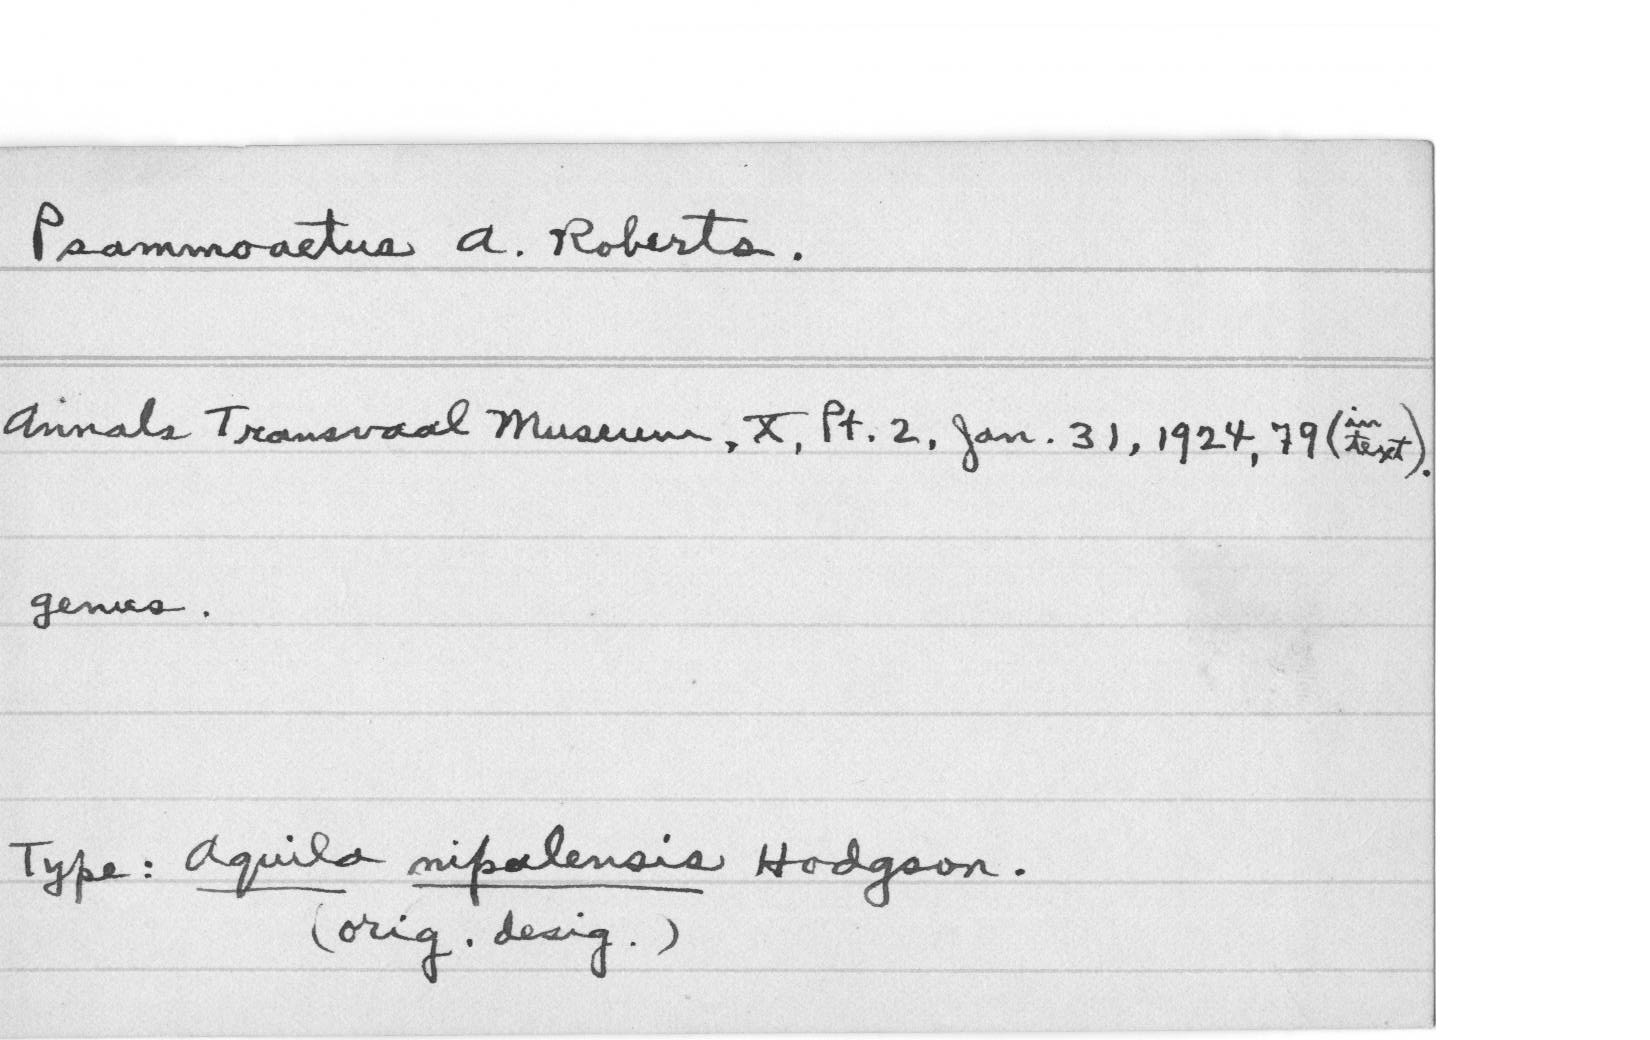 Psammoaetus A. Roberts.
Annals Transvaal Museum, X, Pt. 2, Jan. 31, 1924, 79 (in text).
genus.
Type: Aquila nipalensis Hodgson.
(orig. desig.)